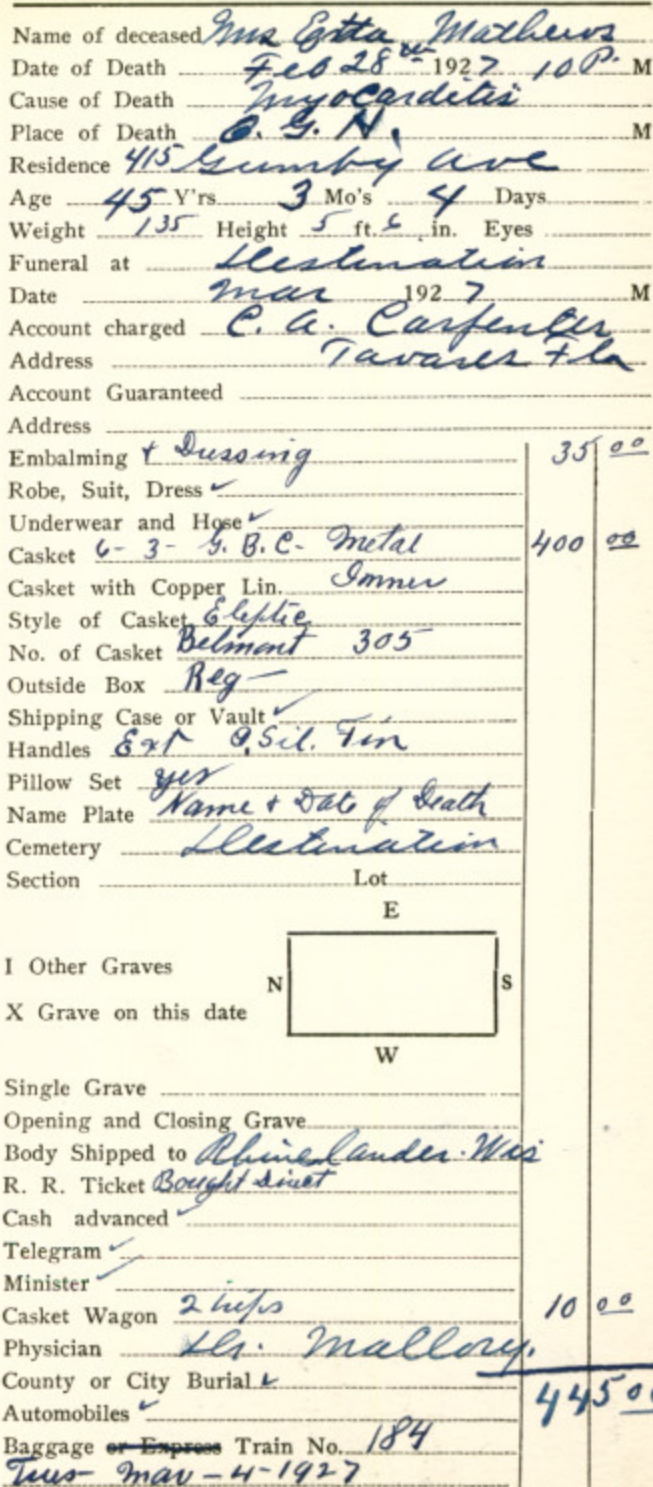 Name of deceased Mrs Etta Mathews
Date of Death Feb 28th 1927 10 P. M
Cause of Death Myocarditis
Place of Death O. G. H. M
Residence 415 Ave
Age 45 Y'rs. 3 Mo's 4 Days
Weight 135 Height 5 ft. 6 in. Eyes
Funeral at Destination
Date Mar 1927 M
Account charged C. A. Carpenter
Address Tavares Fla
Account Guaranteed
Address
Embalming + Dressing 35 00
Robe, Suit, Dress ✓
Underwear and Hose ✓
Casket 6-3- G. B. C- Metal 400 00
Casket with Copper Lin. Inner
Style of Casket Eleptic
No. of Casket Belmont 305
Outside Box Reg-
Shipping Case or Vault ✓
Handles Ext Sil. Fin
Pillow Set yes
Name Plate Name + Date of Death
Cemetery Destination
Section Lot
E
I Other Graves
N S
X Grave on this date
W
Single Grave
Opening and Closing Grave
Body Shipped to Rhinelander. Wis
R. R. Ticket Bought Direct
Cash advanced ✓
Telegram ✓
Minister ✓
Casket Wagon 2 trips 10 00
Physician Dr. Mallory.
County or City Burial ✓
445 00
Automobiles ✓
Baggage or Express Train No. 184
Tues- Mar-4-1927